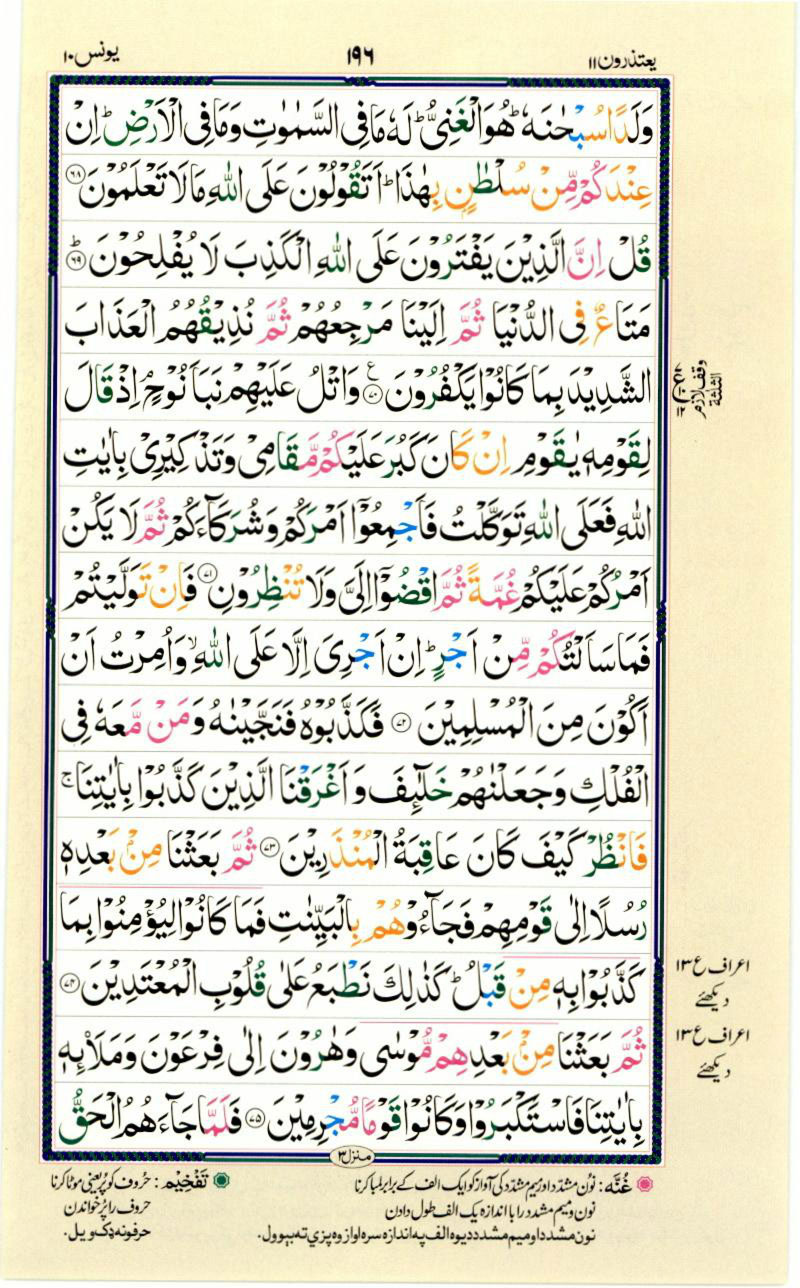 یعتذرون۱۱
۱۹۶
یونس۱۰
وَلَدًا سُبْحٰنَهٗ ؕ هُوَ الْغَنِیُّ ؕ لَهٗ مَا فِی السَّمٰوٰتِ وَمَا فِی الْاَرْضِ ؕ اِنْ
عِنْدَكُمْ مِّنْ سُلْطٰنٍۭ بِهٰذَا ؕ اَتَقُوْلُوْنَ عَلَی اللّٰهِ مَا لَا تَعْلَمُوْنَ ۶۸
قُلْ اِنَّ الَّذِیْنَ یَفْتَرُوْنَ عَلَی اللّٰهِ الْكَذِبَ لَا یُفْلِحُوْنَ ؕ ۶۹
مَتَاعٌ فِی الدُّنْیَا ثُمَّ اِلَیْنَا مَرْجِعُهُمْ ثُمَّ نُذِیْقُهُمُ الْعَذَابَ
الشَّدِیْدَ بِمَا كَانُوْا یَكْفُرُوْنَ ع ۷۰ وَاتْلُ عَلَیْهِمْ نَبَاَ نُوْحٍ ۘ اِذْ قَالَ
لِقَوْمِهٖ یٰقَوْمِ اِنْ كَانَ كَبُرَ عَلَیْكُمْ مَّقَامِیْ وَتَذْكِیْرِیْ بِاٰیٰتِ
اللّٰهِ فَعَلَی اللّٰهِ تَوَكَّلْتُ فَاَجْمِعُوْۤا اَمْرَكُمْ وَشُرَكَآءَكُمْ ثُمَّ لَا یَكُنْ
اَمْرُكُمْ عَلَیْكُمْ غُمَّةً ثُمَّ اقْضُوْۤا اِلَیَّ وَلَا تُنْظِرُوْنِ ۷۱ فَاِنْ تَوَلَّیْتُمْ
فَمَا سَاَلْتُكُمْ مِّنْ اَجْرٍ ؕ اِنْ اَجْرِیَ اِلَّا عَلَی اللّٰهِ ۙ وَاُمِرْتُ اَنْ
اَكُوْنَ مِنَ الْمُسْلِمِیْنَ ۷۲ فَكَذَّبُوْهُ فَنَجَّیْنٰهُ وَمَنْ مَّعَهٗ فِی
الْفُلْكِ وَجَعَلْنٰهُمْ خَلٰٓئِفَ وَاَغْرَقْنَا الَّذِیْنَ كَذَّبُوْا بِاٰیٰتِنَا ۚ
فَانْظُرْ كَیْفَ كَانَ عَاقِبَةُ الْمُنْذَرِیْنَ ۷۳ ثُمَّ بَعَثْنَا مِنْۢ بَعْدِهٖ
رُسُلًا اِلٰی قَوْمِهِمْ فَجَآءُوْهُمْ بِالْبَیِّنٰتِ فَمَا كَانُوْا لِیُؤْمِنُوْا بِمَا
كَذَّبُوْا بِهٖ مِنْ قَبْلُ ؕ كَذٰلِكَ نَطْبَعُ عَلٰی قُلُوْبِ الْمُعْتَدِیْنَ ۷۴
ثُمَّ بَعَثْنَا مِنْۢ بَعْدِهِمْ مُّوْسٰی وَهٰرُوْنَ اِلٰی فِرْعَوْنَ وَمَلَا۟ئِهٖ
بِاٰیٰتِنَا فَاسْتَكْبَرُوْا وَكَانُوْا قَوْمًا مُّجْرِمِیْنَ ۷۵ فَلَمَّا جَآءَهُمُ الْحَقُّ
وقف لازم
الثلٰثة
اعراف ع ۱۳
دیکھئے
اعراف ع ۱۳
دیکھئے
منزل۳
غُنَّه: نون مشدّد اور میم مشدّد کی آواز کو ایک الف کے برابر لمبا کرنا
نون و میم مشدد را با اندازه یک الف طول دادن
نون مشدد او میم مشدد دیوه الف په اندازه سره اواز وه پزې ته بېوول.
تَفْخِیْم: حُروف کو پُر یعنی موٹا کرنا
حروف را پُر خواندن
حرفونه ډک ویل.